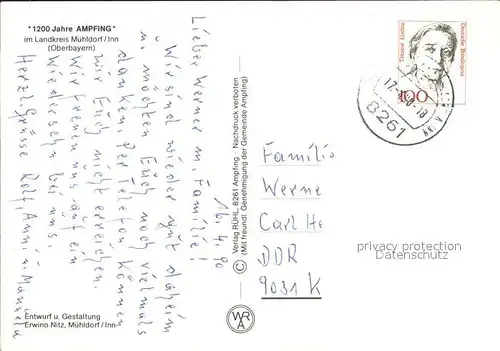 "1200 Jahre AMPFING"
im Landkreis Mühldorf/Inn
(Oberbayern)
16.4.90
Lieber Werner m. Familie!
Wir sind wieder gut daheim
u. möchten Euch noch vielmals
danken. Per Telefon können
wir Euch nicht erreichen.
Wir freuen uns auf ein
Wiedersehn bei uns.
Herzl. Grüsse Rolf, Anni u. Manuela
Entwurf u. Gestaltung
Erwino Nitz, Mühldorf/Inn
© Verlag RÜHL, 8261 Ampfing Nachdruck verboten
(Mit freundl. Genehmigung der Gemeinde Ampfing)
WRA
Therese Giehse
Deutsche Bundespost
100
8261
Familie
Werne
Carl He
DDR
9031 K
privacy protection
Datenschutz